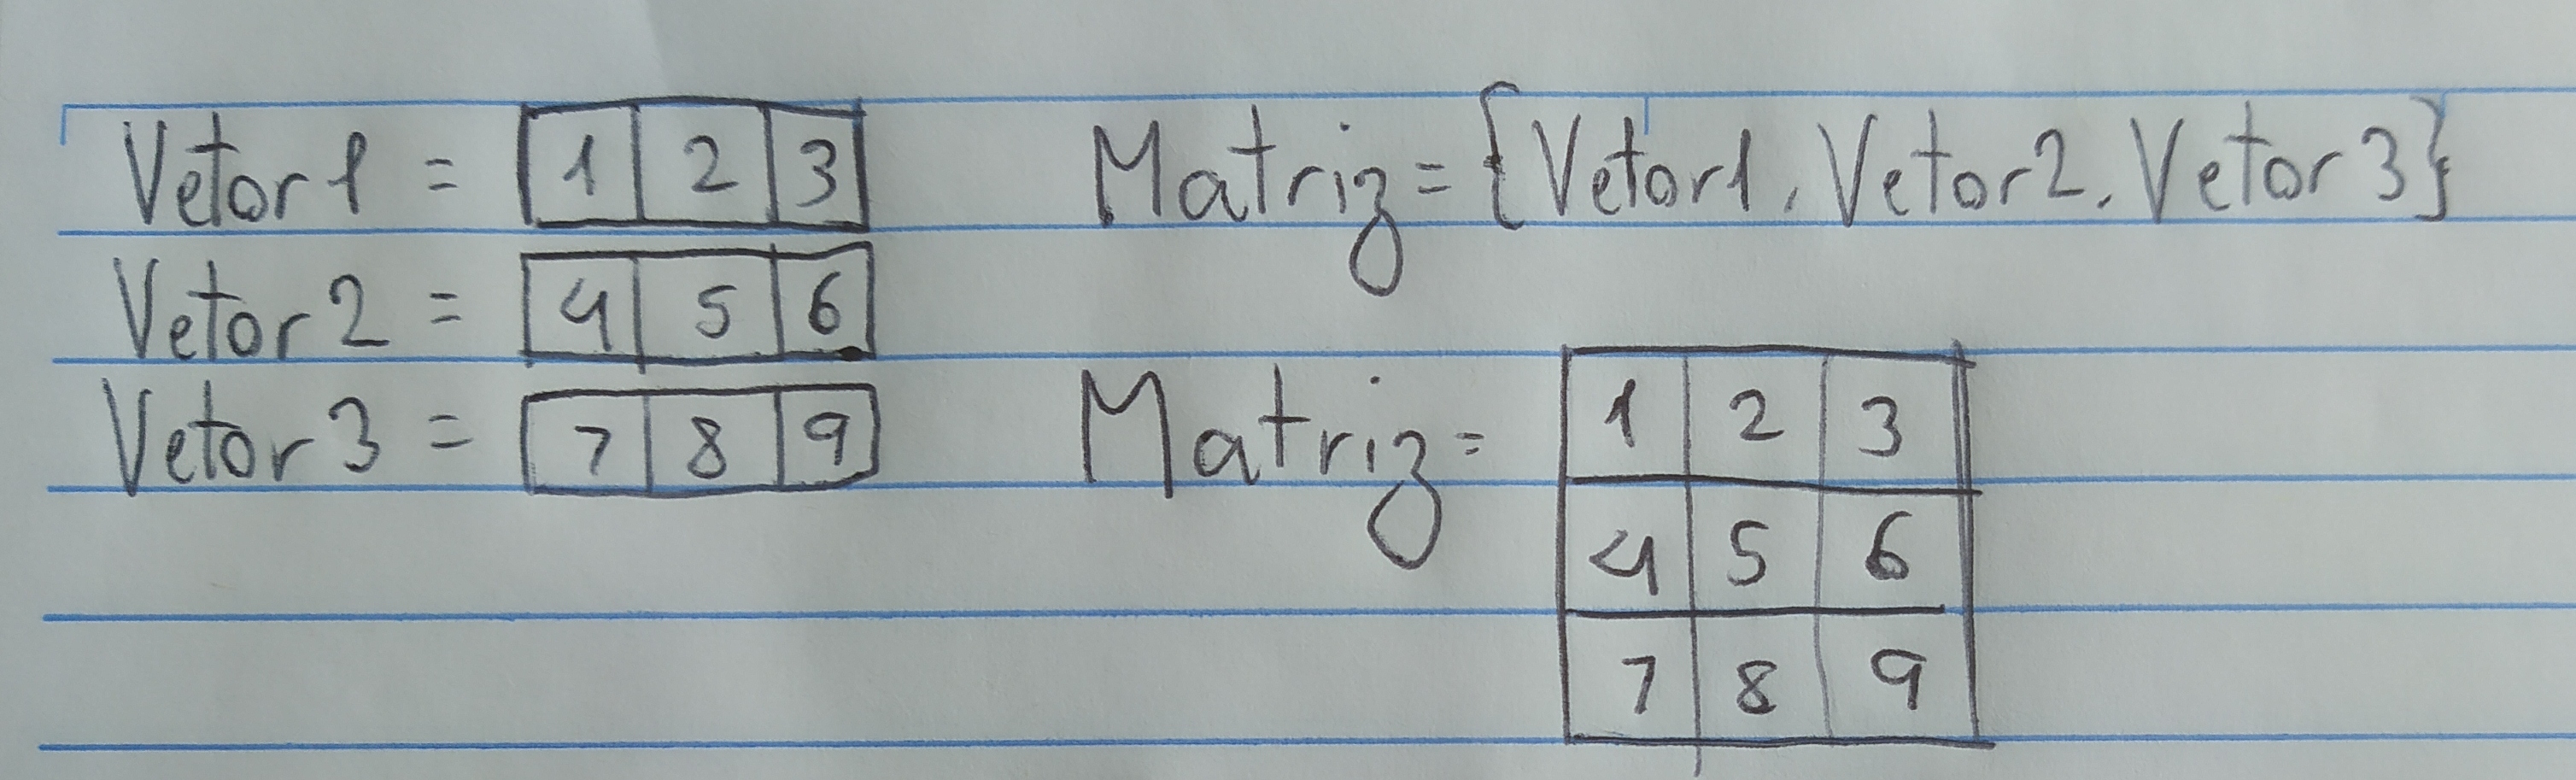 Vetor 1 = 1 2 3
Vetor 2 = 4 5 6
Vetor 3 = 7 8 9
Matriz = {Vetor1, Vetor2, Vetor 3}
Matriz =
1 2 3
4 5 6
7 8 9